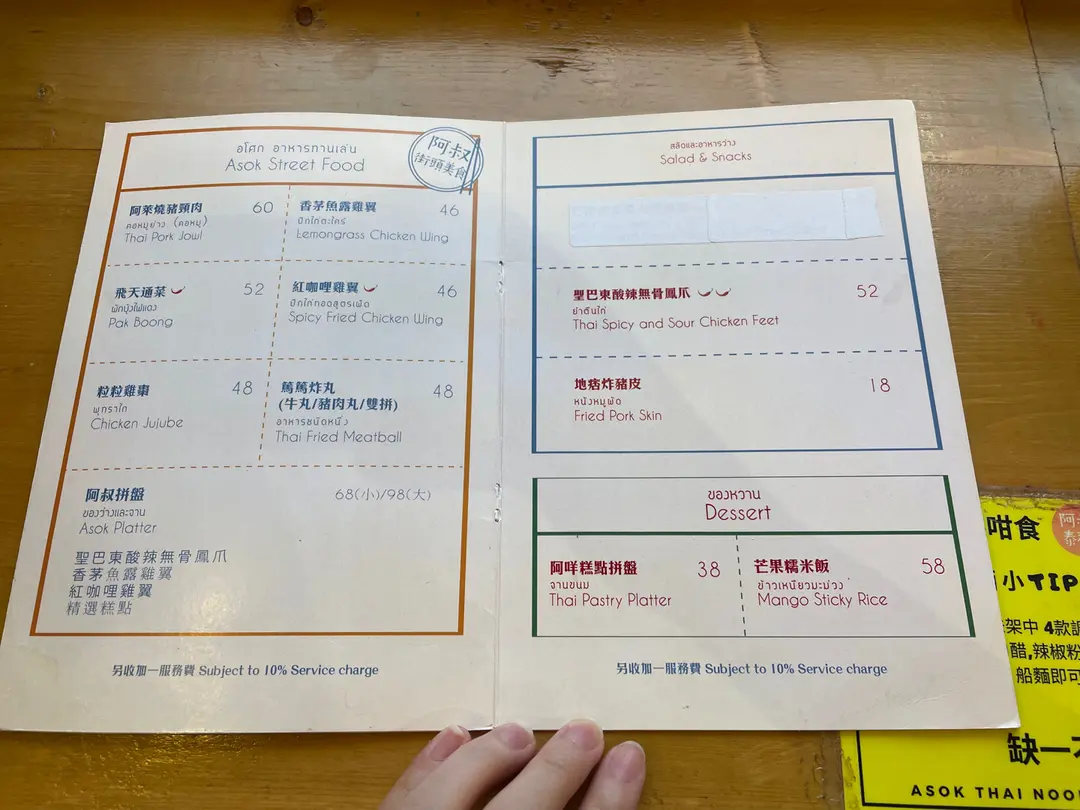 อโศก อาหารทานเล่น
Asok Street Food
阿叔
街頭美食
阿萊燒豬頸肉 60
คอหมูย่าง (คอหมู)
Thai Pork Jowl
香茅魚露雞翼 46
ปีกไก่ตะไคร้
Lemongrass Chicken Wing
飛天通菜 52
ผักบุ้งไฟแดง
Pak Boong
紅咖哩雞翼 46
ปีกไก่ทอดสูตรเผ็ด
Spicy Fried Chicken Wing
粒粒雞棗 48
พุทราไก่
Chicken Jujube
篤篤炸丸 48
(牛丸/豬肉丸/雙拼)
อาหารชนิดหนึ่ง
Thai Fried Meatball
阿叔拼盤 68(小)/98(大)
ของว่างและจาน
Asok Platter
聖巴東酸辣無骨鳳爪
香茅魚露雞翼
紅咖哩雞翼
精選糕點
另收加一服務費 Subject to 10% Service charge
สลัดและอาหารว่าง
Salad & Snacks
聖巴東酸辣無骨鳳爪 52
ยำตีนไก่
Thai Spicy and Sour Chicken Feet
地痞炸豬皮 18
หนังหมูผัด
Fried Pork Skin
ของหวาน
Dessert
阿咩糕點拼盤 38
จานขนม
Thai Pastry Platter
芒果糯米飯 58
ข้าวเหนียวมะม่วง
Mango Sticky Rice
另收加一服務費 Subject to 10% Service charge
咁食
阿
泰
小TIP
架中 4款
醋,辣椒粉
船麵即可
缺一
ASOK THAI NOO